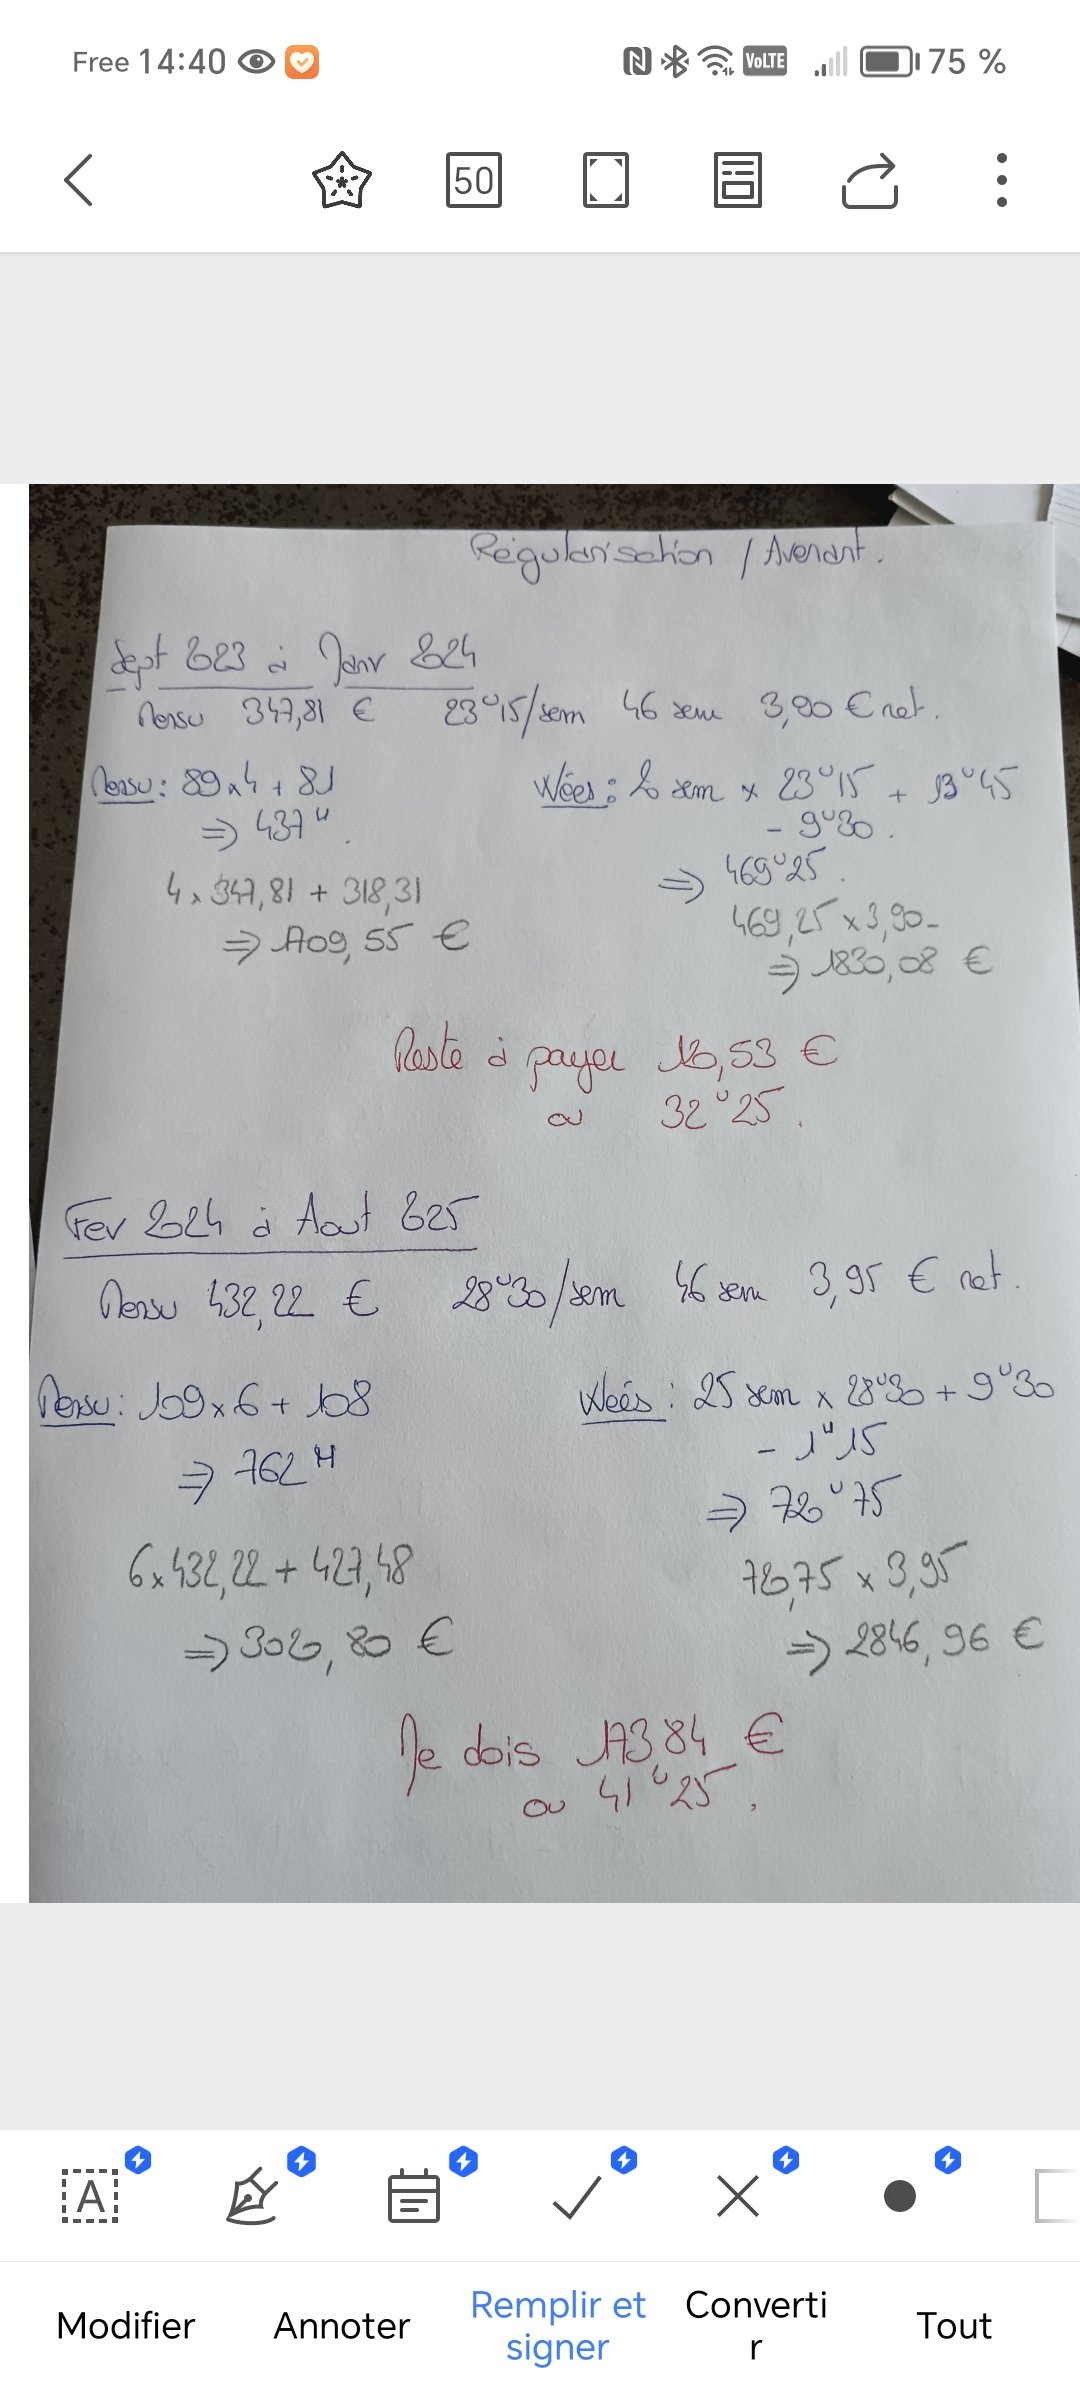 Free 14:40
VoLTE
75 %
50
Régularisation / Avenant.
Sept 2023 à Janv 2024
Mensu 347,81 € 23H15/sem 46 sem 3,90 € net.
Mensu : 89x4 + 81
⇒ 437H.
4x347,81 + 318,31
⇒ 1709,55 €
Wées : 20 sem x 23H15 + 13H45
- 9H30.
⇒ 469H25.
469,25 x 3,90-
⇒ 1830,08 €
Reste à payer 120,53 €
ou 32H25.
Fev 2024 à Aout 2025
Mensu 432,22 € 28H30/sem 46 sem 3,95 € net.
Mensu : 109x6 + 108
⇒ 762H
6x432,22 + 427,48
⇒ 3020,80 €
Wées : 25 sem x 28H30 + 9H30
- 1H15
⇒ 720H75
720,75 x 3,95
⇒ 2846,96 €
Je dois 173,84 €
ou 41H25.
A
Modifier
Annoter
Remplir et
signer
Converti
r
Tout